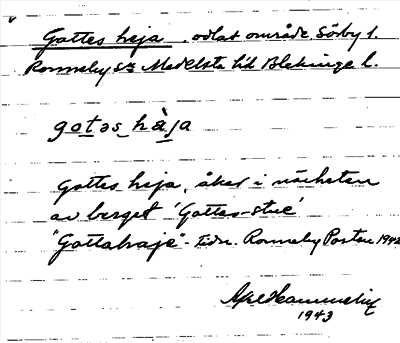 Gottes heja, odlat område, Sörby 1.
Ronneby sn Medelsta hd Blekinge l.
gotəs hàja
Gottes heja, åker i närheten
av berget 'Gottes-stue'
"Gottahaje" - tidn. Ronneby Posten 1942
1943